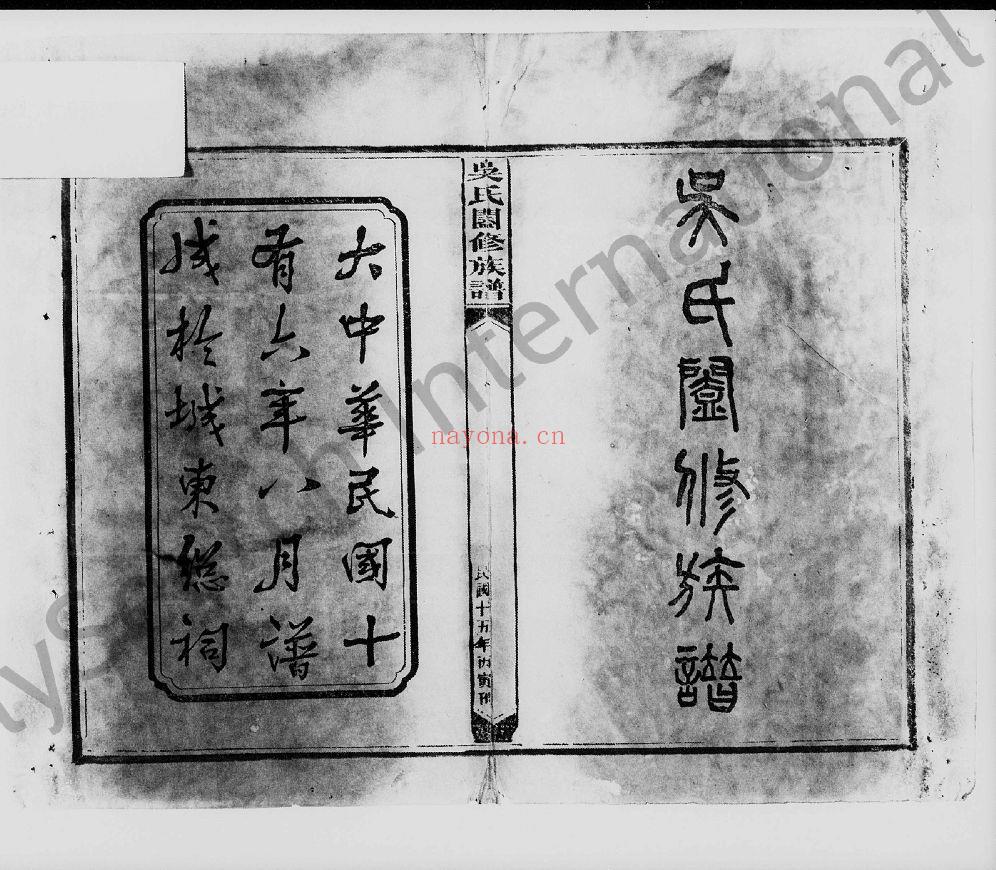 吳氏闔修族譜
吳氏闔修族譜
民國十五年丙寅刊
大中華民國十
有六年八月譜
成於城東總祠
nayona.cn
lySearch International